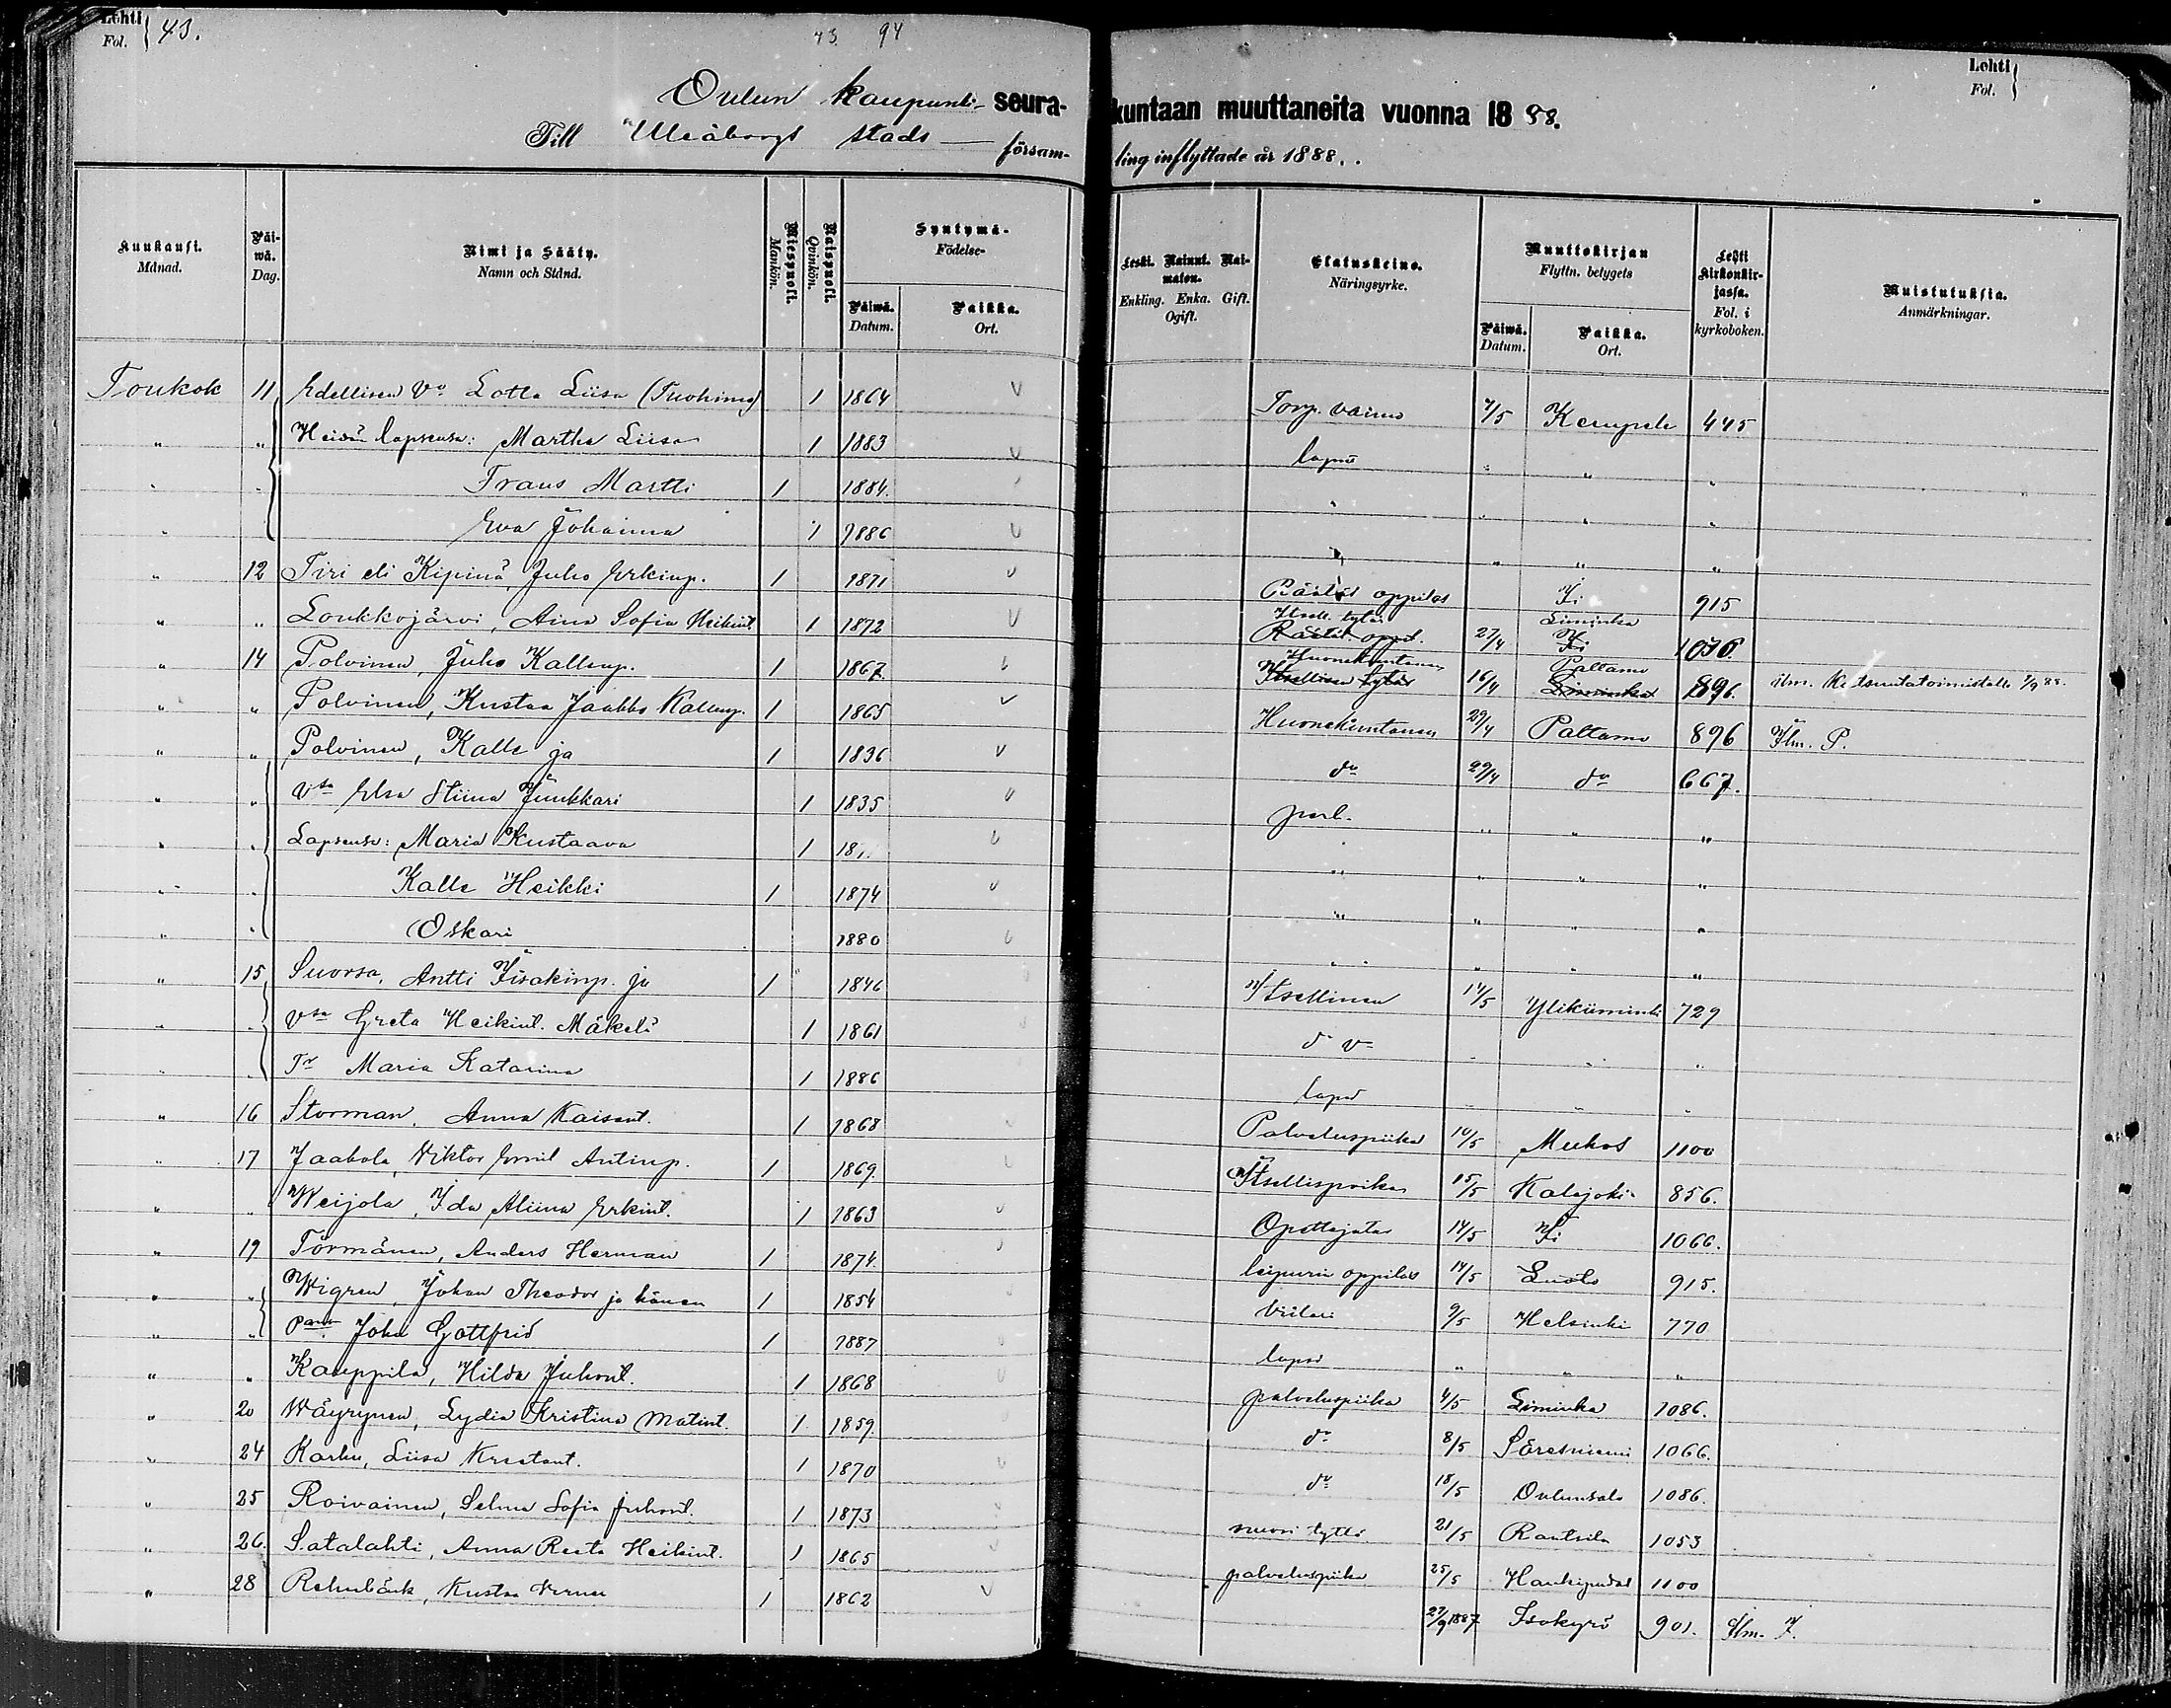 Lehti Fol. 43.
43. 94
Lehti Fol.
Oulun kaupunki- seurakuntaan muuttaneita vuonna 1888.
Till Uleåborgs stads församling inflyttade år 1888.
Kuukausi. Månad.
Päiwä. Dag.
Nimi ja Sääty. Namn och Stånd.
Miespuoli. Mankön.
Naispuoli. Qvinkön.
Syntymä- Födelse-
Päiwä. Datum.
Paikka. Ort.
Leski. Nainut. Naimaton.
Enkling. Enka. Gift. Ogift.
Elatuskeino. Näringsyrke.
Muuttokirjan Flyttn. betygets
Päiwä. Datum.
Paikka. Ort.
Lehti Kirkonkirjassa. Fol. i kyrkoboken.
Muistutuksia. Anmärkningar.
Toukok 11 Edellisen Vo Lotta Liisa (Tuohino) 1 1864 Torp. vaimo 7/5 Kempele 445
" " Heidän lapsensa: Martha Liisa 1 1883 lapsi " " "
" " Frans Martti 1 1884. " " " "
" Eva Johanna 1 1886 " " " "
" 12 Tiri eli Kipinä, Juho Erkinp. 1 1871 Räätäl oppilas Ii 915
" " Loukkojärvi, Aina Sofia Heikint. 1 1872 Itsell. tytär Räätäl. oppil. 27/4 Liminka Ii 1070
" 14 Polvinen, Juho Kallenp. 1 1867. Huonekuntainen Itsellisen tytär 16/4 Paltamo Liminka 896. ilm. Kutsuntatoimistolle 7/9 88.
" " Polvinen, Kustaa Jaakko Kallenp. 1 1865 Huonekuntainen 29/4 Paltamo 896 Ilm. P.
" " Polvinen, Kalle ja 1 1836 do 29/4 do 667.
" " Vsa Elsa Stiina Junkkari 1 1835 " " "
" " Lapsensa: Maria Kustaava 1 18 " " " "
" " Kalle Heikki 1 1874 " " "
" " Oskari 1880 " " " "
" 15 Suorsa, Antti Iisakinp. ja 1 1846 Itsellinen 14/5 Ylikiiminki 729
" " Vsa Greta Heikint. Mäkelä 1 1861 d v " " "
" " Tr Maria Katarina 1 1886 lapsi " " "
" 16 Storman, Anna Kaisant. 1 1868 Palveluspiika 10/5 Muhos 1100
" 17 Jaakola, Viktor Emil Antinp. 1 1869. Itsellispoika 15/5 Kalajoki 856.
" " Weijola, Ida Aliina Erkint. 1 1863 Opettajatar 14/5 Ii 1066.
" 19 Törmänen, Anders Herman 1 1874 leipurin oppilas 14/5 915.
" " Wigren, Johan Theodor ja hänen 1 1854 Viilari 9/5 Helsinki 770
" " Poika Joha Gottfrid 1 1887 lapsi " " "
" " Kauppila, Hilda Juhont. 1 1868 palveluspiika 4/5 Liminka 1086.
" 20 Wäyrynen, Lydia Kristina Matint. 1 1859. do 8/5 Säresniemi 1066.
" 24 Karhu, Liisa Kustant. 1 1870 do 18/5 Oulunsalo 1086.
" 25 Roivainen, Selma Sofia Juhont. 1 1873 nuori tyttö 21/5 Rantsila 1053
" 26. Satalahti, Anna Reeta Heikint. 1 1865 palveluspiika 25/5 Haukipudas 1100
" 28 Rehnbäck, Kustaa Verner 1 1862 27/9 1887 Isokyrö 901. Ilm. I.